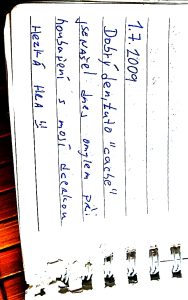 1.7.2009
Dobrý den, tuto "cache"
jsem našel dnes omylem při
houbaření s mojí dcerkou
Hezká hra !!